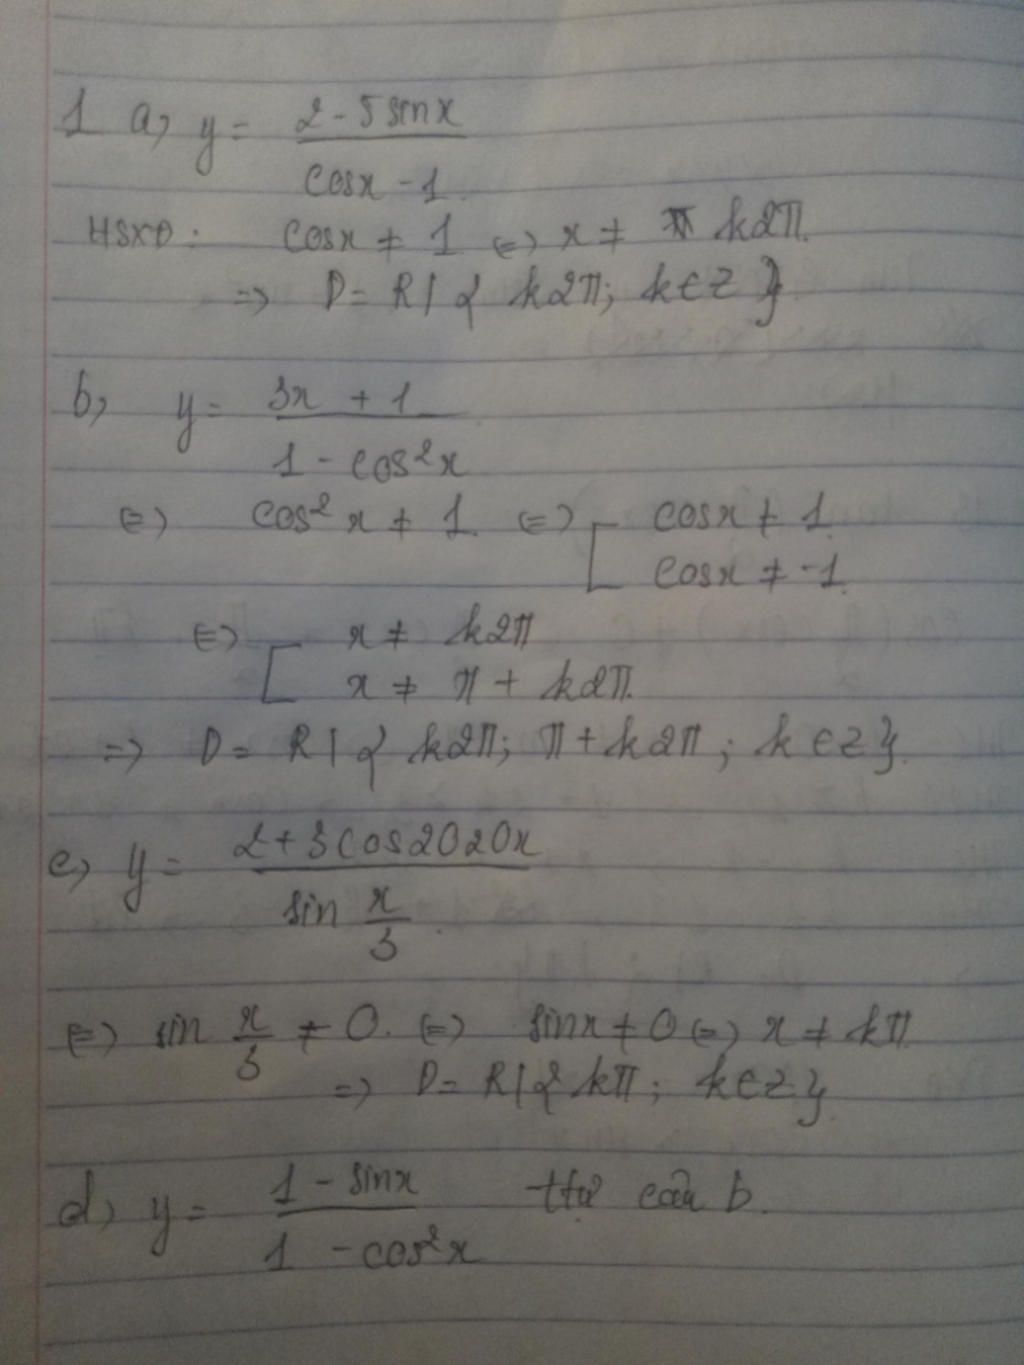 1 a, y = (2 - 5 sinx)/(cosx - 1)
HSXĐ: cosx ≠ 1 <=> x ≠ k2π.
=> D = R | { k2π; k ∈ Z }
b, y = (3x + 1)/(1 - cos²x)
<=> cos²x ≠ 1 <=> [ cosx ≠ 1
cosx ≠ -1
<=> [ x ≠ k2π
x ≠ π + k2π
=> D = R | { k2π; π + k2π; k ∈ Z }.
c, y = (2 + 3 cos2020x)/(sin x/3)
<=> sin x/3 ≠ 0. <=> sinx ≠ 0 <=> x ≠ kπ
=> D = R | { kπ; k ∈ Z }
d, y = (1 - sinx)/(1 - cos²x) ttự câu b.